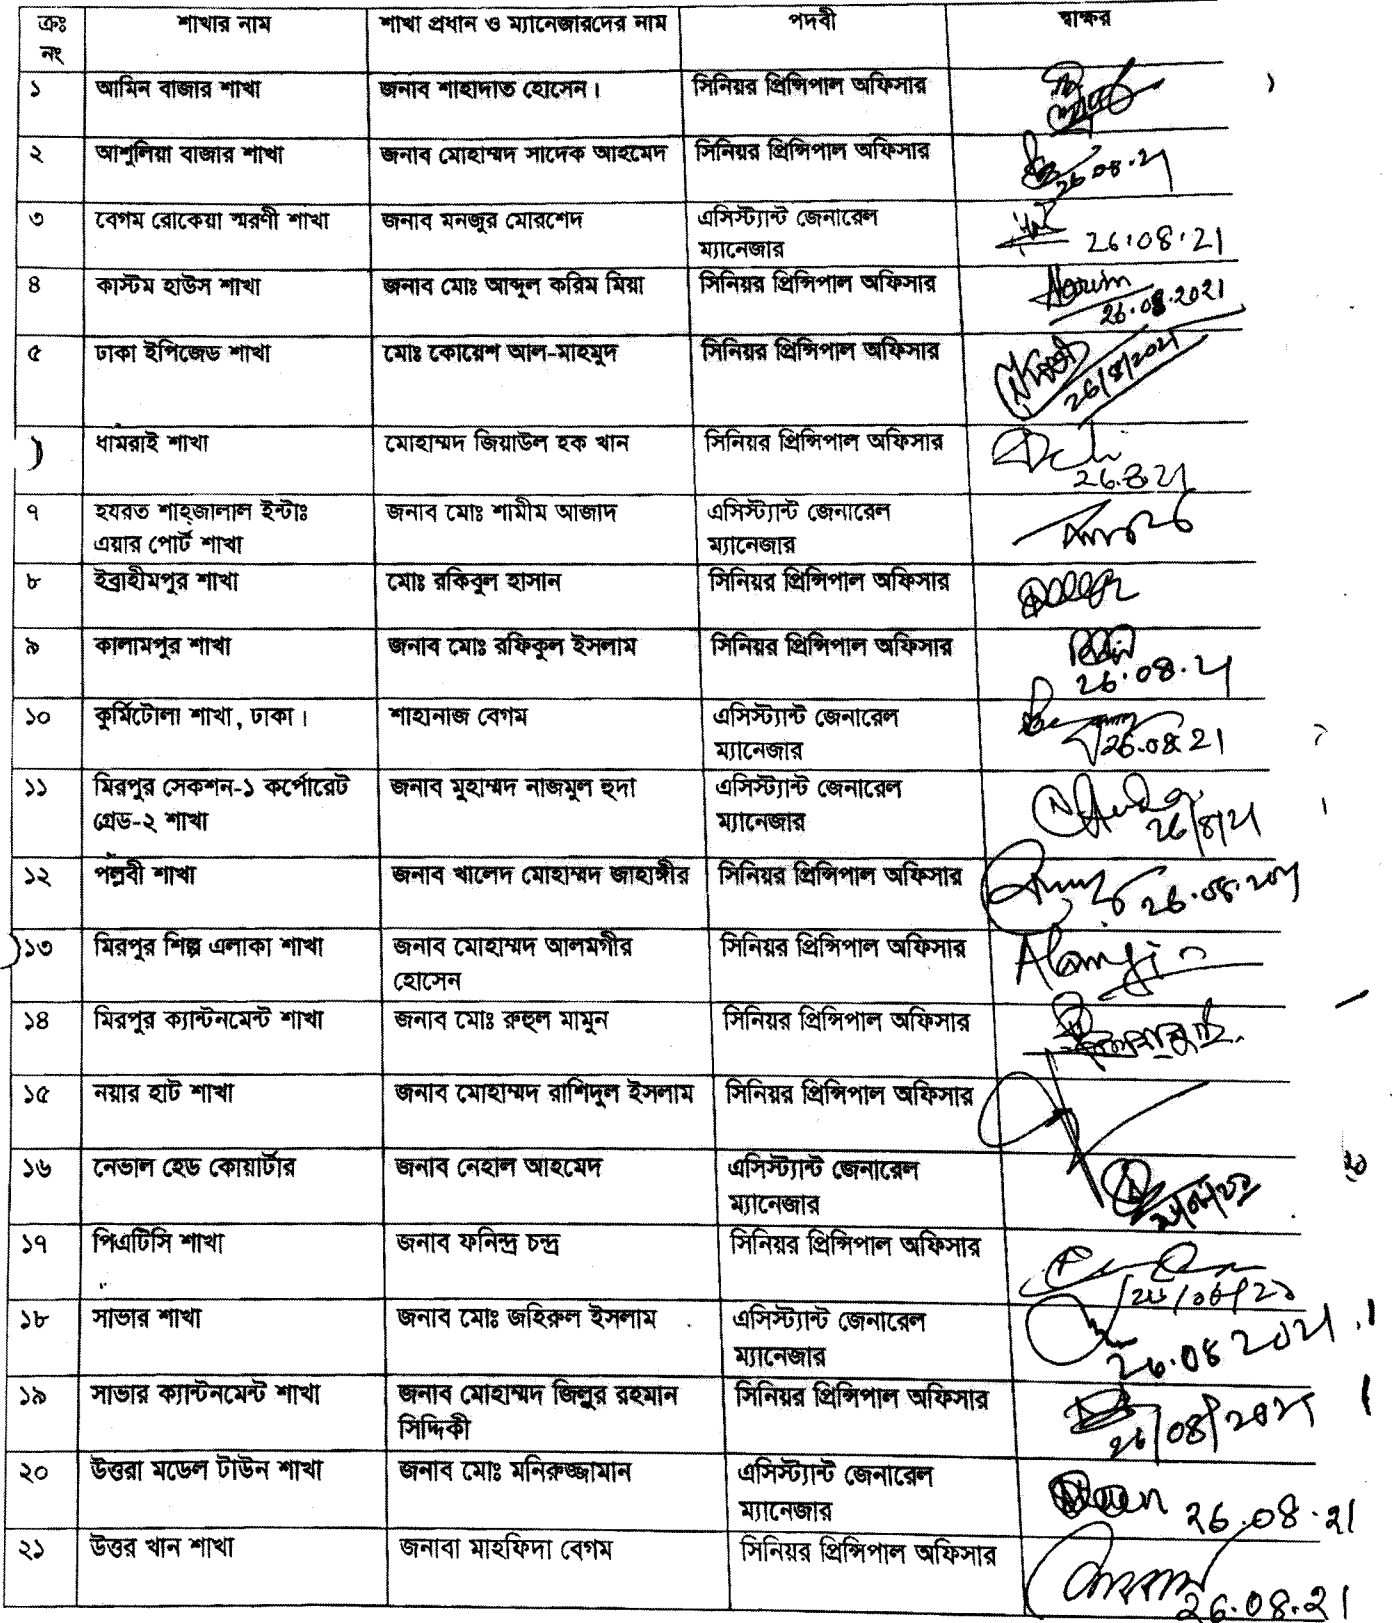 ক্রঃ নং | শাখার নাম | শাখা প্রধান ও ম্যানেজারদের নাম | পদবী | স্বাক্ষর
১ | আমিন বাজার শাখা | জনাব শাহাদাত হোসেন। | সিনিয়র প্রিন্সিপাল অফিসার
২ | আশুলিয়া বাজার শাখা | জনাব মোহাম্মদ সাদেক আহমেদ | সিনিয়র প্রিন্সিপাল অফিসার | 26.08.21
৩ | বেগম রোকেয়া স্মরণী শাখা | জনাব মনজুর মোরশেদ | এসিস্ট্যান্ট জেনারেল ম্যানেজার | 26.08.21
৪ | কাস্টম হাউস শাখা | জনাব মোঃ আব্দুল করিম মিয়া | সিনিয়র প্রিন্সিপাল অফিসার | 26.08.2021
৫ | ঢাকা ইপিজেড শাখা | মোঃ কোয়েশ আল-মাহমুদ | সিনিয়র প্রিন্সিপাল অফিসার | 26/8/2021
ধামরাই শাখা | মোহাম্মদ জিয়াউল হক খান | সিনিয়র প্রিন্সিপাল অফিসার | 26.8.21
৭ | হযরত শাহ্জালাল ইন্টাঃ এয়ার পোর্ট শাখা | জনাব মোঃ শামীম আজাদ | এসিস্ট্যান্ট জেনারেল ম্যানেজার
৮ | ইব্রাহীমপুর শাখা | মোঃ রকিবুল হাসান | সিনিয়র প্রিন্সিপাল অফিসার
৯ | কালামপুর শাখা | জনাব মোঃ রফিকুল ইসলাম | সিনিয়র প্রিন্সিপাল অফিসার | 26.08.21
১০ | কুর্মিটোলা শাখা, ঢাকা। | শাহানাজ বেগম | এসিস্ট্যান্ট জেনারেল ম্যানেজার | 26.08.21
১১ | মিরপুর সেকশন-১ কর্পোরেট গ্রেড-২ শাখা | জনাব মুহাম্মদ নাজমুল হুদা | এসিস্ট্যান্ট জেনারেল ম্যানেজার | 26/8/21
১২ | পল্লবী শাখা | জনাব খালেদ মোহাম্মদ জাহাঙ্গীর | সিনিয়র প্রিন্সিপাল অফিসার | 26.08.2021
১৩ | মিরপুর শিল্প এলাকা শাখা | জনাব মোহাম্মদ আলমগীর হোসেন | সিনিয়র প্রিন্সিপাল অফিসার | Alamgir
১৪ | মিরপুর ক্যান্টনমেন্ট শাখা | জনাব মোঃ রুহুল মামুন | সিনিয়র প্রিন্সিপাল অফিসার
১৫ | নয়ার হাট শাখা | জনাব মোহাম্মদ রাশিদুল ইসলাম | সিনিয়র প্রিন্সিপাল অফিসার
১৬ | নেভাল হেড কোয়ার্টার | জনাব নেহাল আহমেদ | এসিস্ট্যান্ট জেনারেল ম্যানেজার
১৭ | পিএটিসি শাখা | জনাব ফনিন্দ্র চন্দ্র | সিনিয়র প্রিন্সিপাল অফিসার
১৮ | সাভার শাখা | জনাব মোঃ জহিরুল ইসলাম | এসিস্ট্যান্ট জেনারেল ম্যানেজার | 26.08 2021
১৯ | সাভার ক্যান্টনমেন্ট শাখা | জনাব মোহাম্মদ জিল্লুর রহমান সিদ্দিকী | সিনিয়র প্রিন্সিপাল অফিসার | 26/08/2021
২০ | উত্তরা মডেল টাউন শাখা | জনাব মোঃ মনিরুজ্জামান | এসিস্ট্যান্ট জেনারেল ম্যানেজার | 26.08.21
২১ | উত্তর খান শাখা | জনাবা মাহফিদা বেগম | সিনিয়র প্রিন্সিপাল অফিসার | 26.08.21